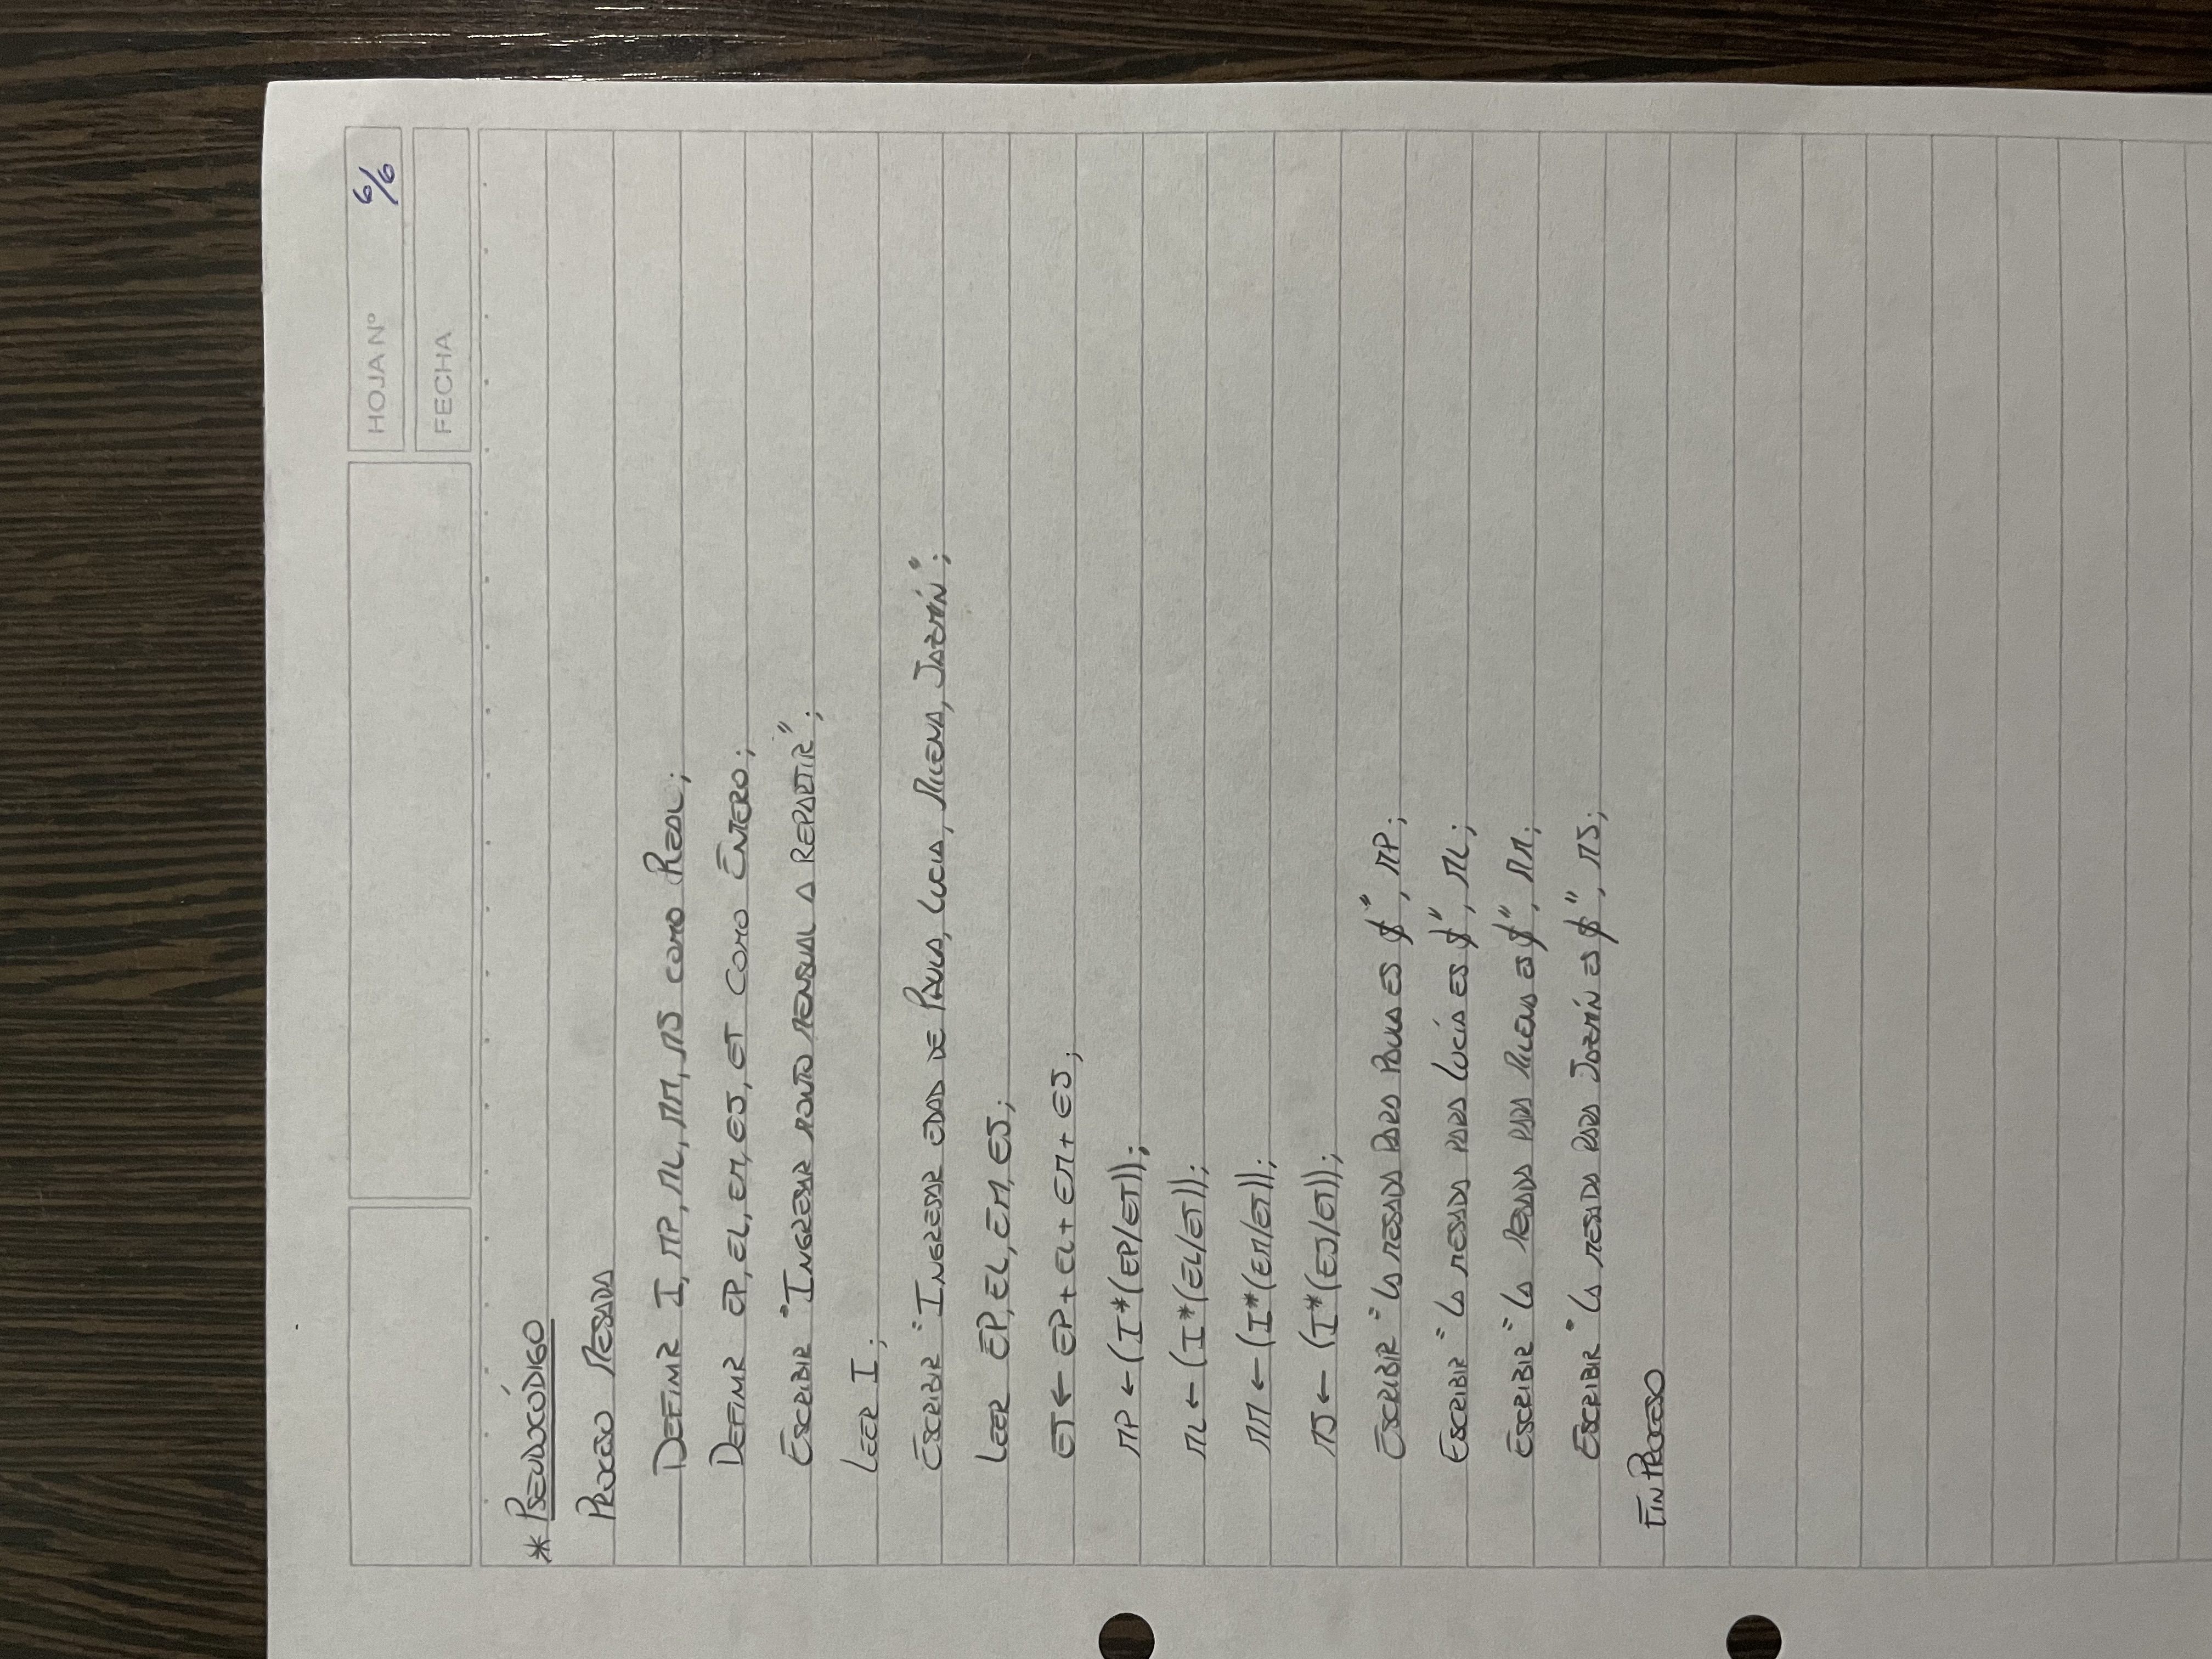 HOJA Nº 6/6
FECHA
* PSEUDOCÓDIGO
PROCESO MESADA
DEFINIR I, MP, ML, MM, MJ COMO REAL;
DEFINIR EP, EL, EM, EJ, ET COMO ENTERO;
ESCRIBIR "INGRESAR MONTO MENSUAL A REPARTIR";
LEER I;
ESCRIBIR "INGRESAR EDAD DE PAULA, LUCIA, MILENA, JAZMÍN";
LEER EP, EL, EM, EJ;
ET ← EP + EL + EM + EJ;
MP ← (I*(EP/ET));
ML ← (I*(EL/ET));
MM ← (I*(EM/ET));
MJ ← (I*(EJ/ET));
ESCRIBIR "LA MESADA PARA PAULA ES $", MP;
ESCRIBIR "LA MESADA PARA LUCÍA ES $", ML;
ESCRIBIR "LA MESADA PARA MILENA ES $", MM;
ESCRIBIR "LA MESADA PARA JAZMÍN ES $", MJ;
FIN PROCESO